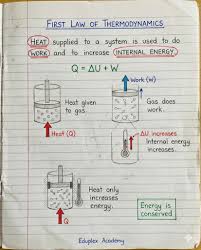 FIRST LAW OF THERMODYNAMICS
HEAT supplied to a system is used to do
WORK and to increase INTERNAL ENERGY.
Q = ΔU + W
Work (W)
Heat given
to gas.
Gas does
work.
Heat (Q)
ΔU increases
Internal energy
increases.
Heat only
increases
energy.
Q
Energy is
conserved
Eduplex Academy